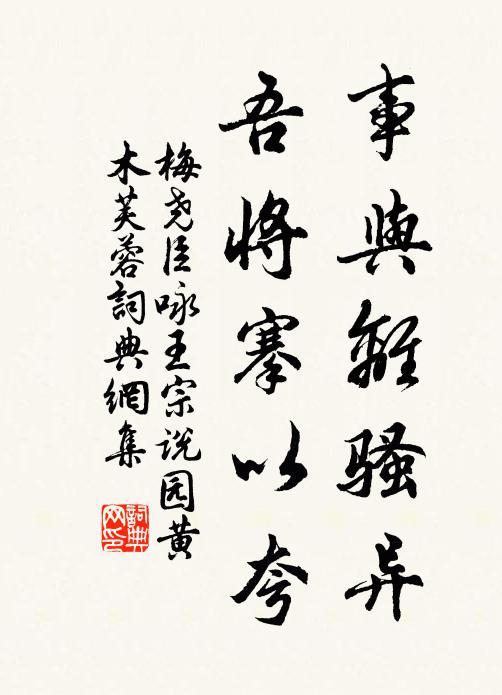 事與離骚异
吾將搴以夸
梅尧臣咏王宗说园黄
木芙蓉詞典網集
詞典
网印